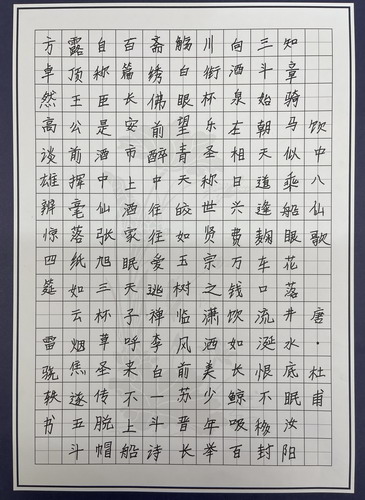 饮中八仙歌 唐·杜甫
知章骑马似乘船眼花落井水底眠汝阳
三斗始朝天道逢麴车口流涎恨不移封
向酒泉左相日兴费万钱饮如长鲸吸百
川衔杯乐圣称世贤宗之潇洒美少年举
觞白眼望青天皎如玉树临风前苏晋长
斋绣佛前醉中往往爱逃禅李白一斗诗
百篇长安市上酒家眠天子呼来不上船
自称臣是酒中仙张旭三杯草圣传脱帽
露顶王公前挥毫落纸如云烟焦遂五斗
方卓然高谈雄辨惊四筵 雷骁轶书